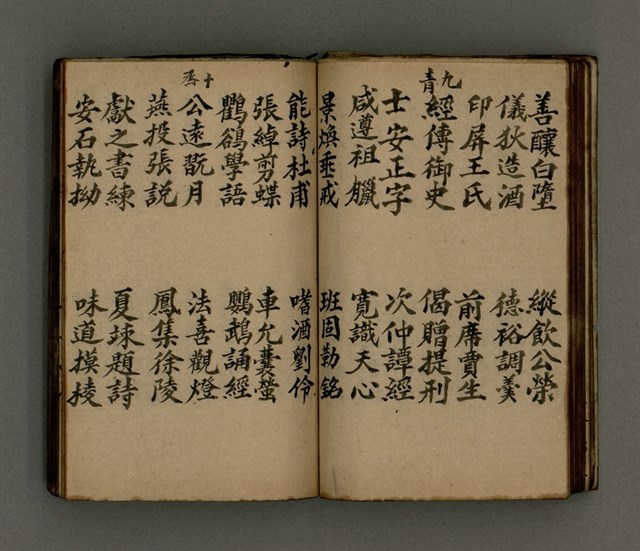 善釀白墮 縱飲公榮
儀狄造酒 德裕調羹
印屏王氏 前席賈生
九青
經傳御史 偈贈提刑
士安正字 次仲譚經
咸遵祖臘 寬識天心
景煥垂戒 班固勒銘
能詩杜甫 嗜酒劉伶
張綽剪蝶 車允囊螢
鸜鵒學語 鸚鵡誦經
十烝
公遠翫月 法喜觀燈
燕投張説 鳳集徐陵
獻之書練 夏竦題詩
安石執拗 味道摸稜